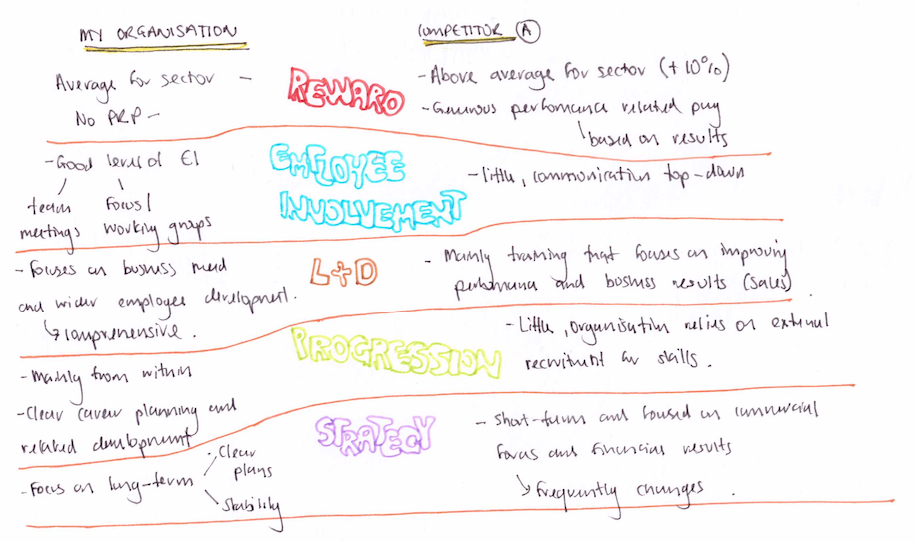 MY ORGANISATION
COMPETITOR A
REWARD
Average for sector -
No PRP -
- Above average for sector (+10%)
- Generous performance related pay
based on results
EMPLOYEE
INVOLVEMENT
- Good level of EI
team
meetings
Focus/
working groups
- little, communication top-down
L+D
- Focuses on business need
and wider employee development.
↳ comprehensive.
- Mainly training that focuses on improving
performance and business results (sales).
PROGRESSION
- Mainly from within
- Clear career planning and
related development
- Little, organisation relies on external
recruitment for skills.
STRATEGY
- Focus on long-term
Clear
plans
Stability
- Short-term and focused on commercial
focus and financial results
↳ frequently changes.